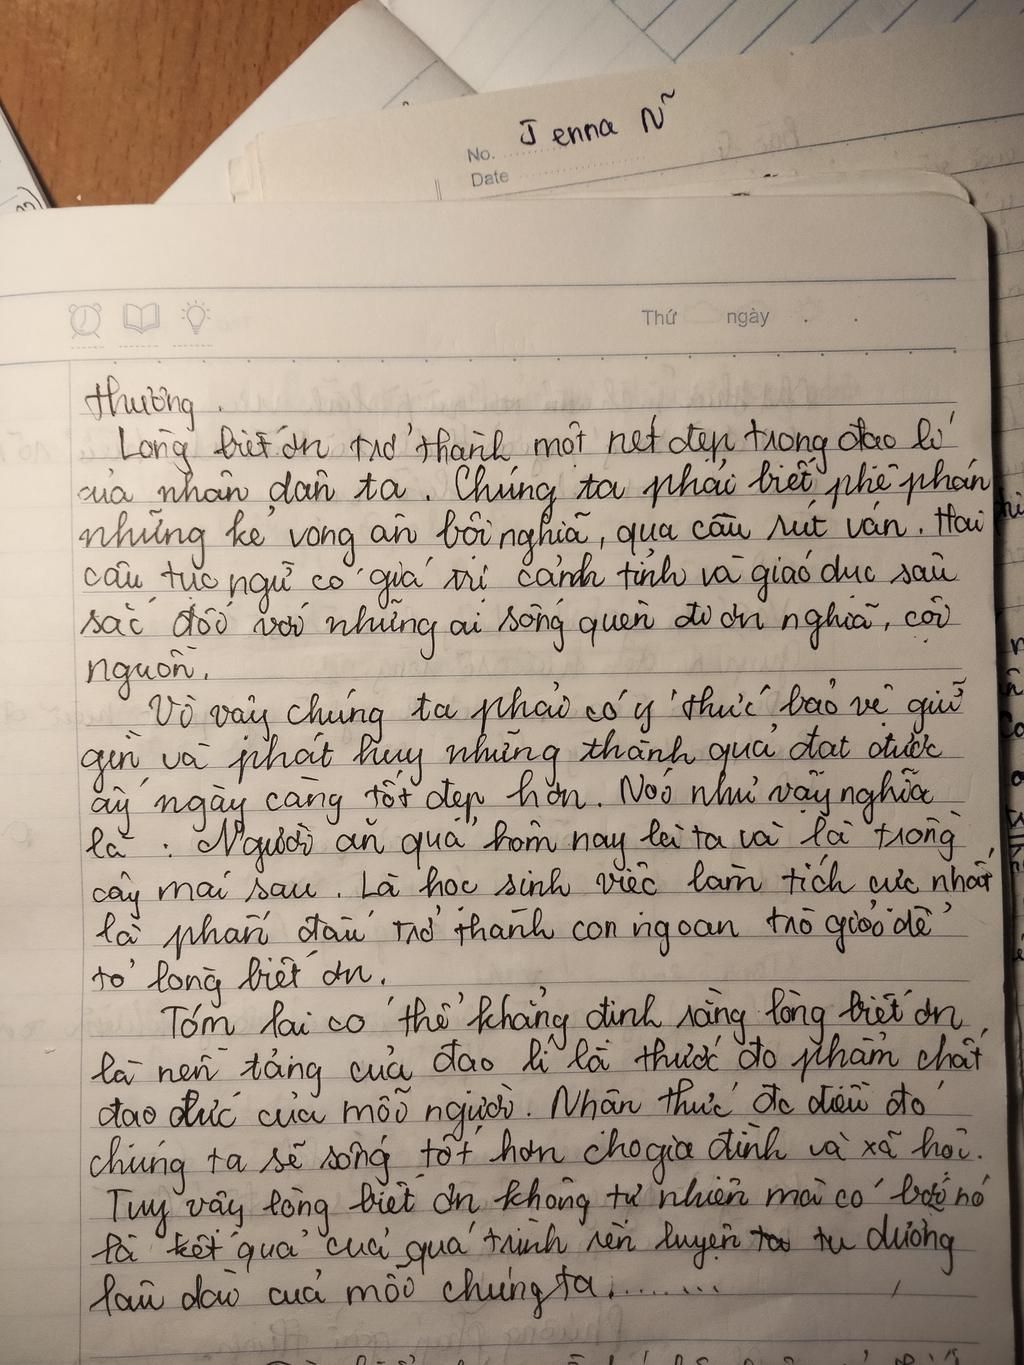 Jenna Ñ
No.
Date
Thứ ngày
thương.
Lòng biết ơn trở thành một nét đẹp trong đạo lí
của nhân dân ta. Chúng ta phải biết phê phán
những kẻ vong ân bội nghĩa, qua cầu rút ván. Hai
câu tục ngữ có giá trị cảnh tỉnh và giáo dục sâu
sắc đối với những ai sống quên đi ơn nghĩa, cội
nguồn.
Vì vậy chúng ta phải có ý thức bảo vệ giữ
gìn và phát huy những thành quả đạt được
ấy ngày càng tốt đẹp hơn. Nói như vậy nghĩa
là : Người ăn quả hôm nay là ta và là trồng
cây mai sau. Là học sinh việc làm tích cực nhất
là phấn đấu trở thành con ngoan trò giỏi để
tỏ lòng biết ơn.
Tóm lại có thể khẳng định rằng lòng biết ơn
là nền tảng của đạo lí là thước đo phẩm chất
đạo đức của mỗi người. Nhận thức đc điều đó
chúng ta sẽ sống tốt hơn cho gia đình và xã hội.
Tuy vậy lòng biết ơn không tự nhiên mà có bởi nó
là kết quả của quá trình rèn luyện tu dưỡng
lâu dài của mỗi chúng ta........